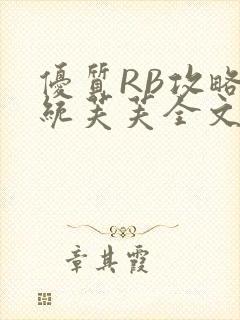 優質RB攻略
統芙芙全文
章其霞